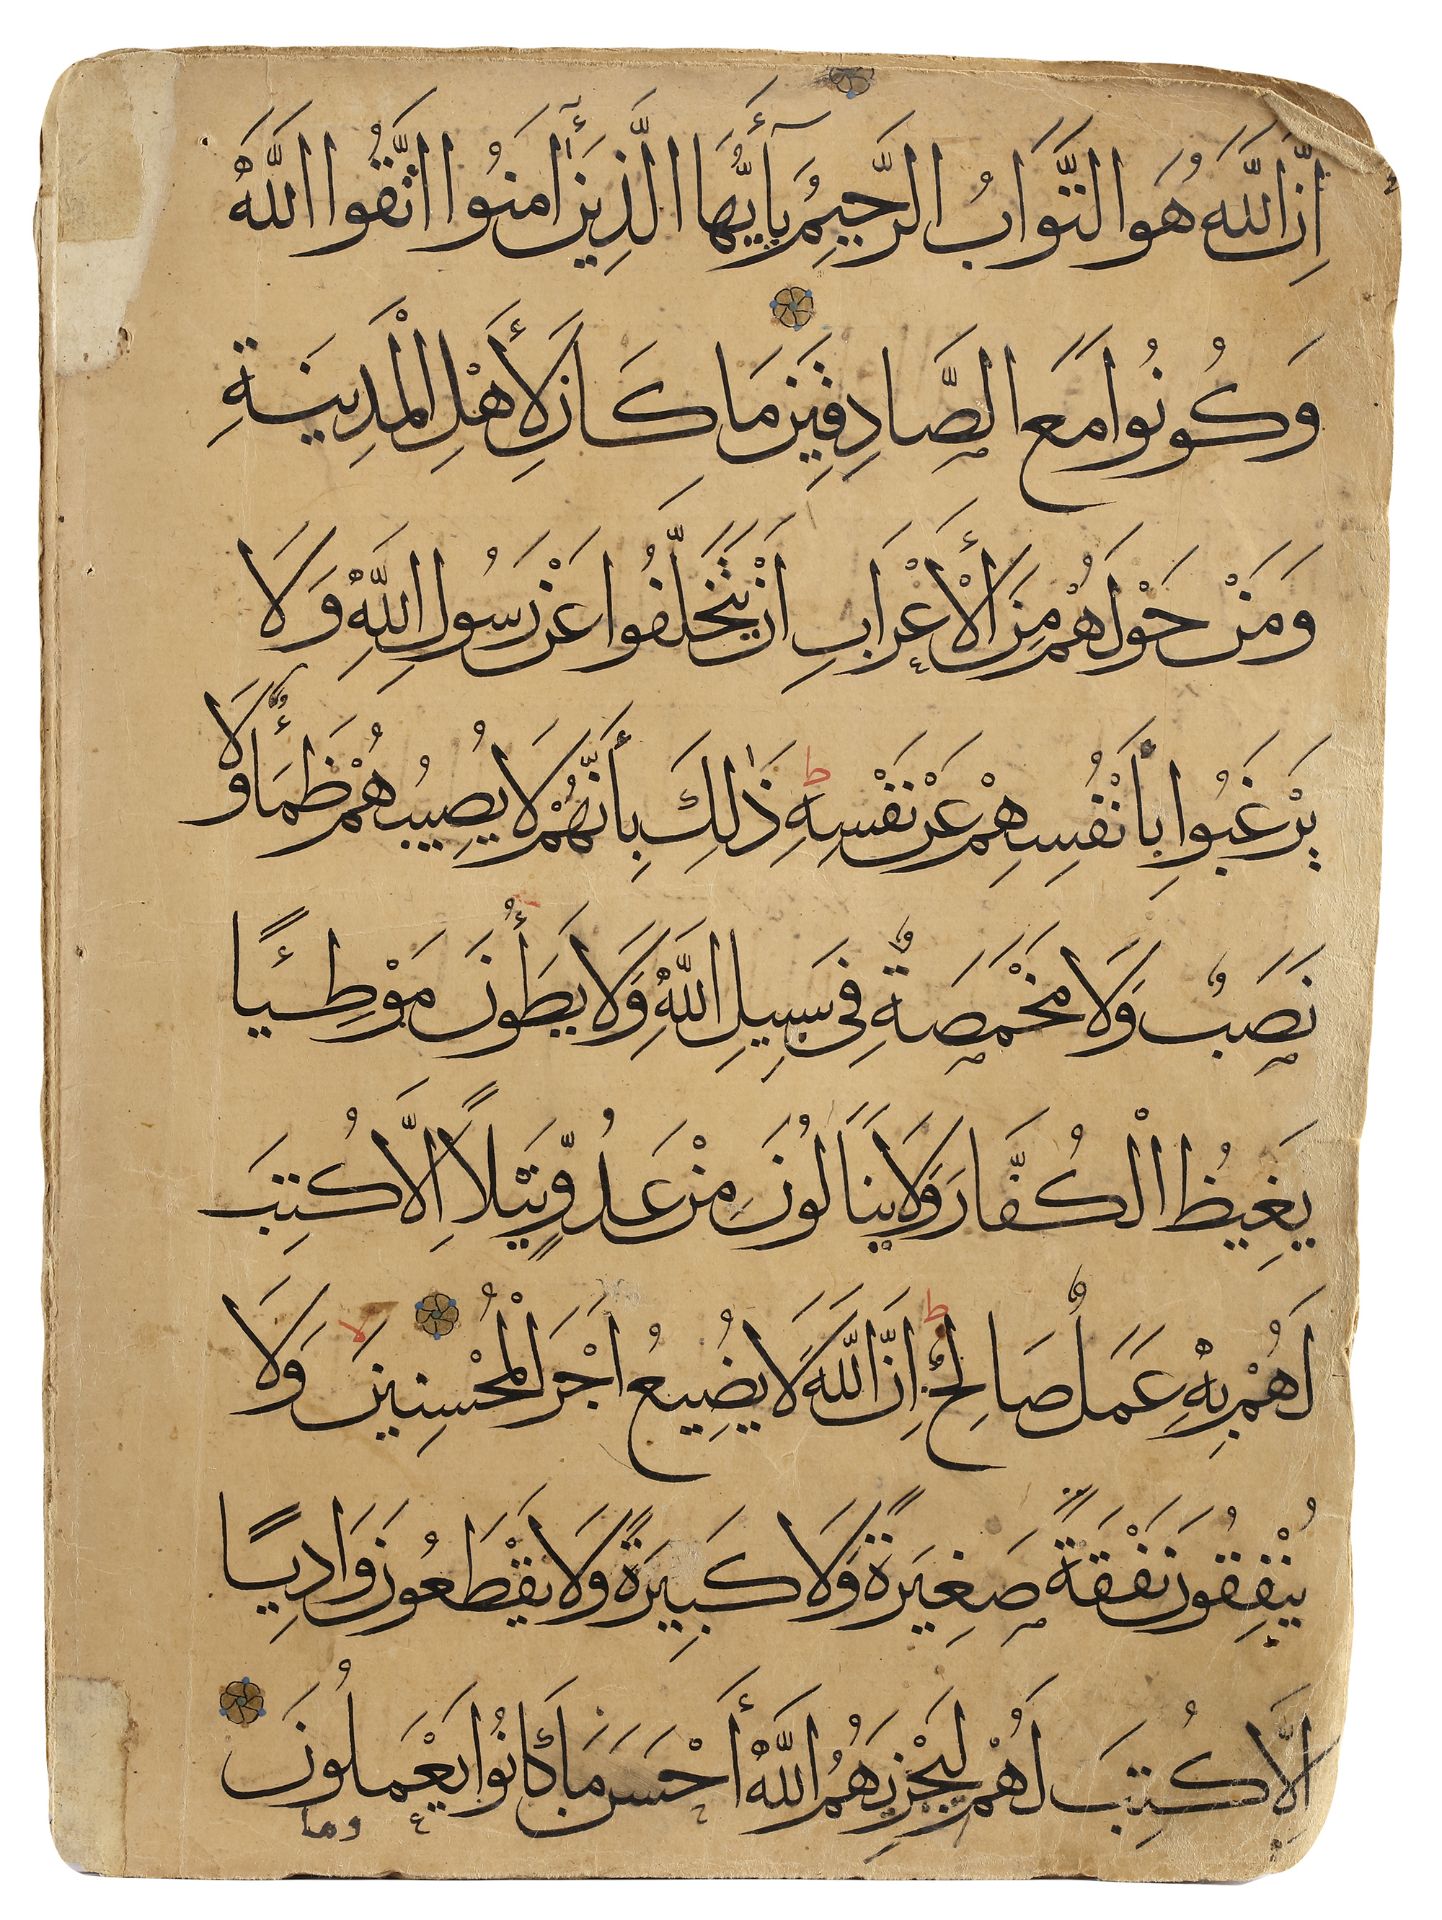 إِنَّ اللَّهَ هُوَ التَّوَّابُ الرَّحِيمُ يَآأَيُّهَا الَّذِينَ أٰمَنُوا اتَّقُوا اللَّهَ
وَكُونُوا مَعَ الصَّادِقِينَ مَا كَانَ لِأَهْلِ الْمَدِينَةِ
وَمَنْ حَوْلَهُمْ مِنَ الْأَعْرَابِ اَنْ يَتَخَلَّفُوا عَنْ رَسُولِ اللَّهِ وَلَا
يَرْغَبُوا بِأَنْفُسِهِمْ عَنْ نَفْسِهِ ط ذٰلِكَ بِأَنَّهُمْ لَا يُصِيبُهُمْ ظَمَأٌ وَلَا
نَصَبٌ وَلَا مَخْمَصَةٌ فِي سَبِيلِ اللَّهِ وَلَا يَطَأُونَ مَوْطِئًا
يَغِيظُ الْكُفَّارَ وَلَا يَنَالُونَ مِنْ عَدُوٍّ نَيْلًا اِلَّا كُتِبَ
لَهُمْ بِهِ عَمَلٌ صَالِحٌ ط اِنَّ اللَّهَ لَا يُضِيعُ اَجْرَ الْمُحْسِنِينَ لا وَلَا
يُنْفِقُونَ نَفَقَةً صَغِيرَةً وَلَا كَبِيرَةً وَلَا يَقْطَعُونَ وَادِيًا
اِلَّا كُتِبَ لَهُمْ لِيَجْزِيَهُمُ اللَّهُ أَحْسَنَ مَا كَانُوا يَعْمَلُونَ
وما